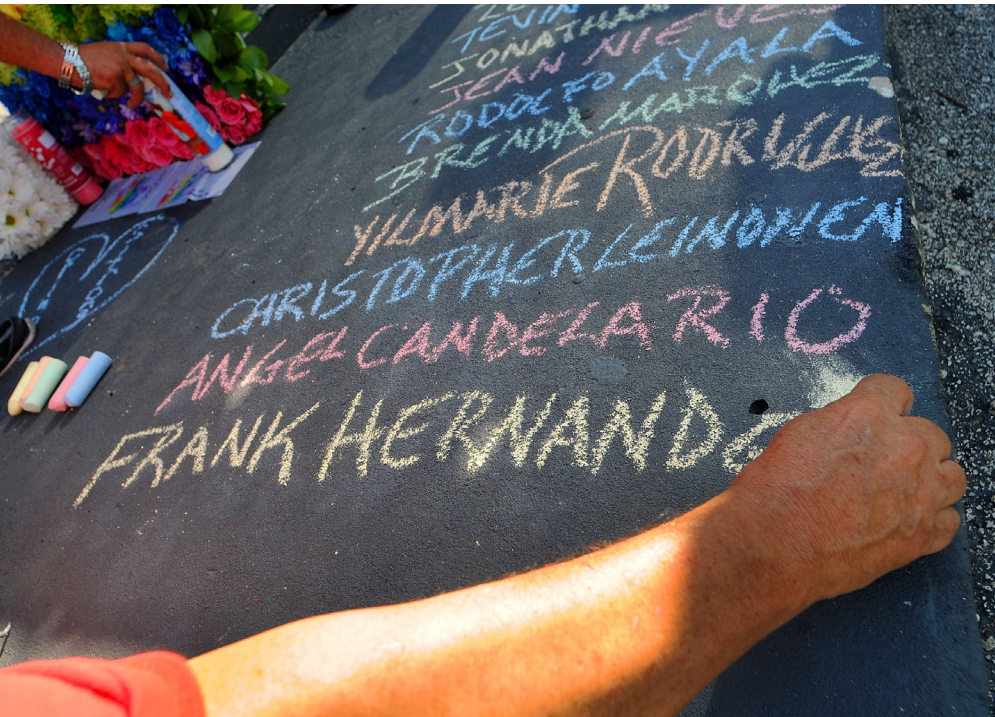 TEVIN
JONATHAN
JEAN NIEVES
RODOLFO AYALA
BRENDA MARQUEZ
YILMARIE RODRIGUES
CHRISTOPHER LEINONEN
ANGEL CANDELARIO
FRANK HERNANDE